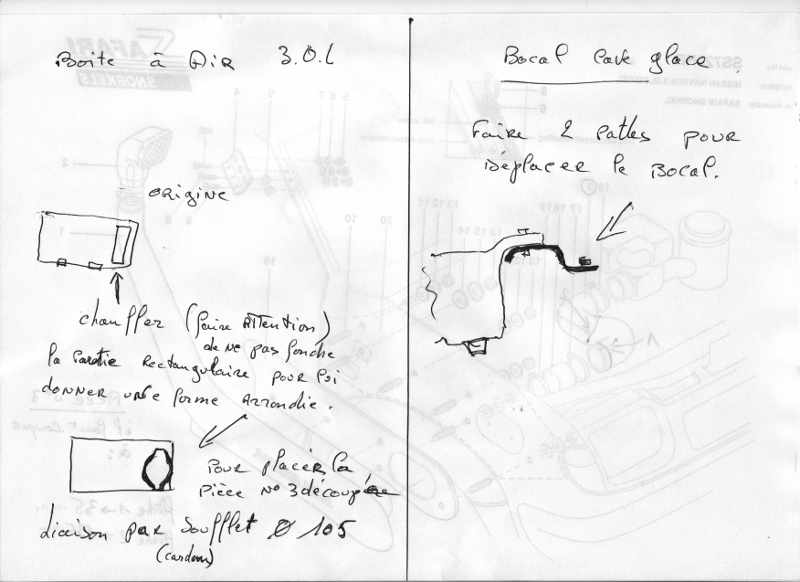 Boite à Air 3.0.L
origine
chauffer (faire attention)
de ne pas fondre
la partie rectangulaire pour lui
donner une forme arrondie.
pour placer la
pièce No 3 découpée
Liaison par soufflet Ø 105
(cardan)
Bocal lave glace.
Faire 2 pattes pour
Déplacer le Bocal.